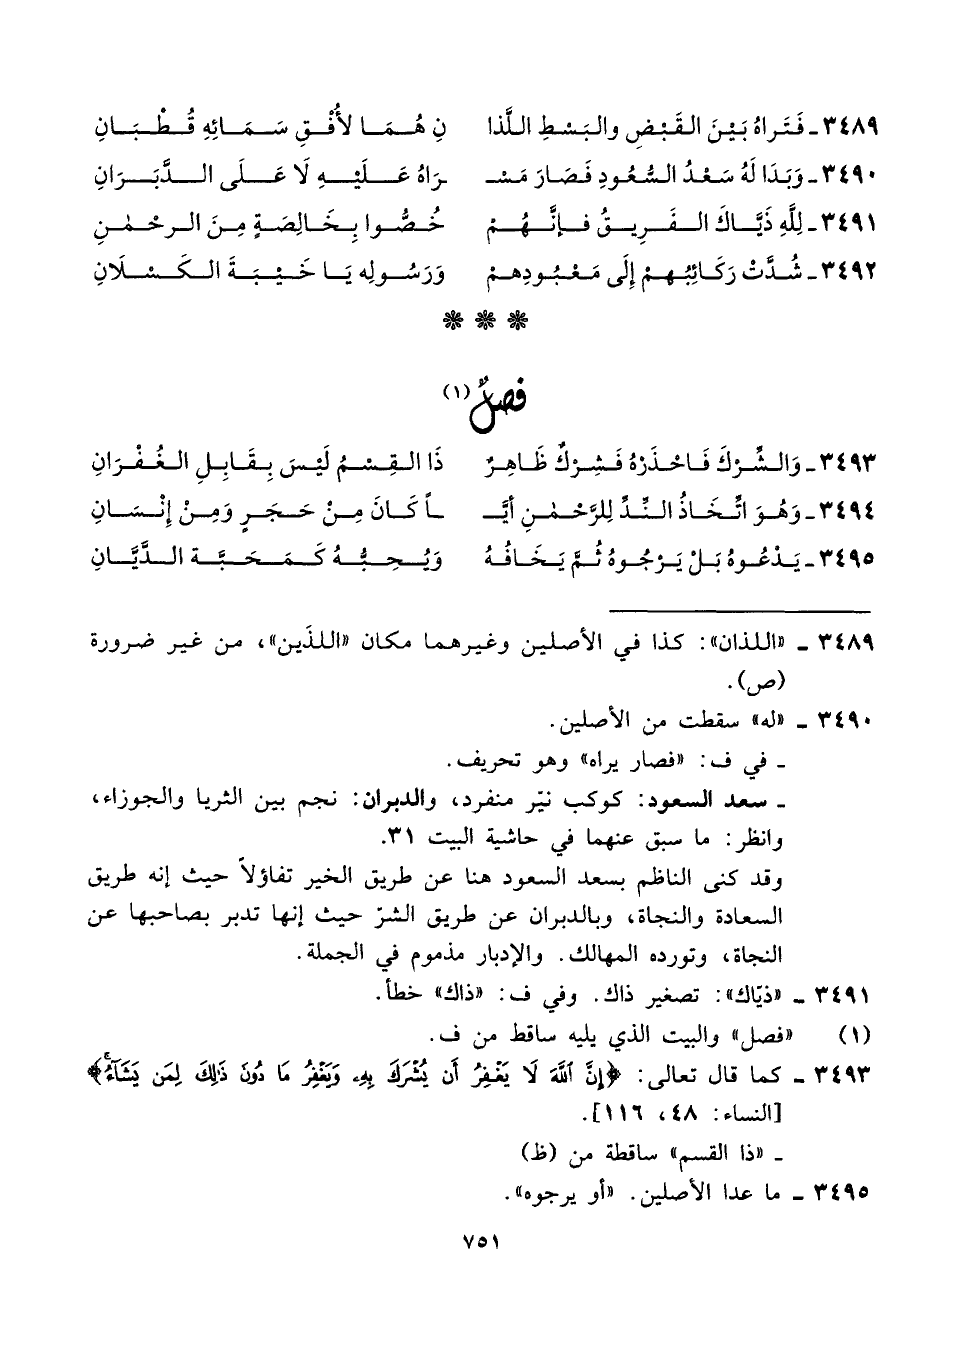 ٣٤٨٩ـ فَتَراهُ بَيْنَ القَبْضِ والبَسْطِ اللَّذا نِ هُمَا لأُفْقِ سَمَائِهِ قُطْبَانِ
٣٤٩٠ـ وَبَدَا لَهُ سَعْدُ السُّعُودِ فَصَارَ مَسْـ ـرَاهُ عَلَيْهِ لَا عَلَى الدَّبَرَانِ
٣٤٩١ـ لِلَّهِ ذَيَّاكَ الفَرِيقُ فإنَّهُمْ خُصُّوا بِخَالِصَةٍ مِنَ الرحْمٰنِ
٣٤٩٢ـ شُدَّتْ رَكَائِبُهمْ إلَى مَعْبُودِهمْ وَرَسُولِه يَا خَيْبَةَ الكَسْلَانِ
❊ ❊ ❊
فصلٌ (١)
٣٤٩٣ـ وَالشِّرْكَ فَاحْذَرْهُ فَشِرْكٌ ظَاهِرٌ ذَا القِسْمُ لَيْسَ بِقَابِلِ الغُفْرَانِ
٣٤٩٤ـ وَهْوَ اتِّخَاذُ النِّدِّ لِلرَّحْمٰنِ أيَّـ ـاً كَانَ مِنْ حَجَرٍ وَمِنْ إنْسَانِ
٣٤٩٥ـ يَدْعُوهُ بَلْ يَرْجُوهُ ثُمَّ يَخَافُهُ وَيُحِبُّهُ كَمَحَبَّة الدَّيَّانِ
٣٤٨٩ ـ «اللذان»: كذا في الأصلين وغيرهما مكان «اللذَين»، من غير ضرورة
(ص).
٣٤٩٠ ـ «له» سقطت من الأصلين.
ـ في ف: «فصار يراه» وهو تحريف.
ـ سعد السعود: كوكب نيّر منفرد، والدبران: نجم بين الثريا والجوزاء،
وانظر: ما سبق عنهما في حاشية البيت ٣١.
وقد كنى الناظم بسعد السعود هنا عن طريق الخير تفاؤلاً حيث إنه طريق
السعادة والنجاة، وبالدبران عن طريق الشرّ حيث إنها تدبر بصاحبها عن
النجاة، وتورده المهالك. والإدبار مذموم في الجملة.
٣٤٩١ ـ «ذيّاك»: تصغير ذاك. وفي ف: «ذاك» خطأ.
(١) «فصل» والبيت الذي يليه ساقط من ف.
٣٤٩٣ ـ كما قال تعالى: ﴿إِنَّ ٱللَّهَ لَا يَغْفِرُ أَن يُشْرَكَ بِهِۦ وَيَغْفِرُ مَا دُونَ ذَٰلِكَ لِمَن يَشَآءُۚ﴾
[النساء: ٤٨، ١١٦].
ـ «ذا القسم» ساقطة من (ظ)
٣٤٩٥ ـ ما عدا الأصلين. «أو يرجوه».
٧٥١